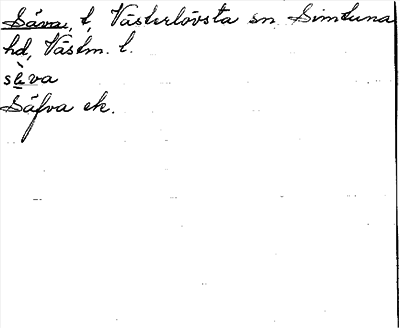 Säva, t, Västerlövsta sn Simtuna
hd, Västm. l.
sèva
Säfva ek.